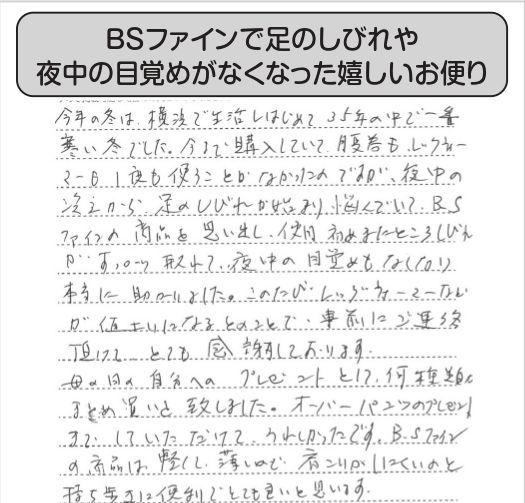 BSファインで足のしびれや
夜中の目覚めがなくなった嬉しいお便り
今年の冬は、横浜で生活しはじめて35年の中で一番
寒い冬でした。今まで購入していて、腹巻も、レッグウォー
マーも1度も使うことがなかったのですが、夜中の
冷えから、足のしびれが始まり悩んでいて、BS
ファインの商品を思い出し、使用初めましたところしびれ
がすっかり取れて、夜中の目覚めもなくなり
本当に助かりました。このたびレッグウォーマーなど
が値上りになるとのことで、事前にご連絡
頂けて、とても感謝しております。
母の日の自分へのプレゼントとして、何種類も
まとめ買いと致しました。オーバーパンツのプレゼント
までしていただけて、うれしかったです。B-Sファイン
の商品は、軽くて、薄いので、肩こりがしにくいのと
持ち歩きに便利でとても良いと思います。